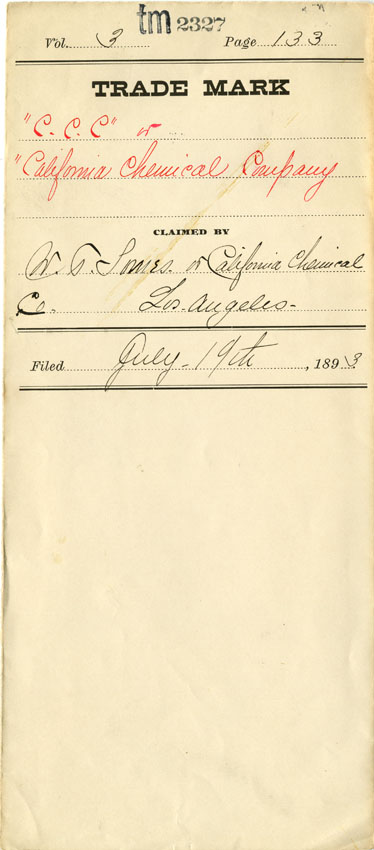 tm 2327
Vol. 3 Page 133
TRADE MARK
"C. C. C" or
"California Chemical Company
CLAIMED BY
W. T. Somes. or California Chemical
Co. Los Angeles-
Filed July 19th, 1893